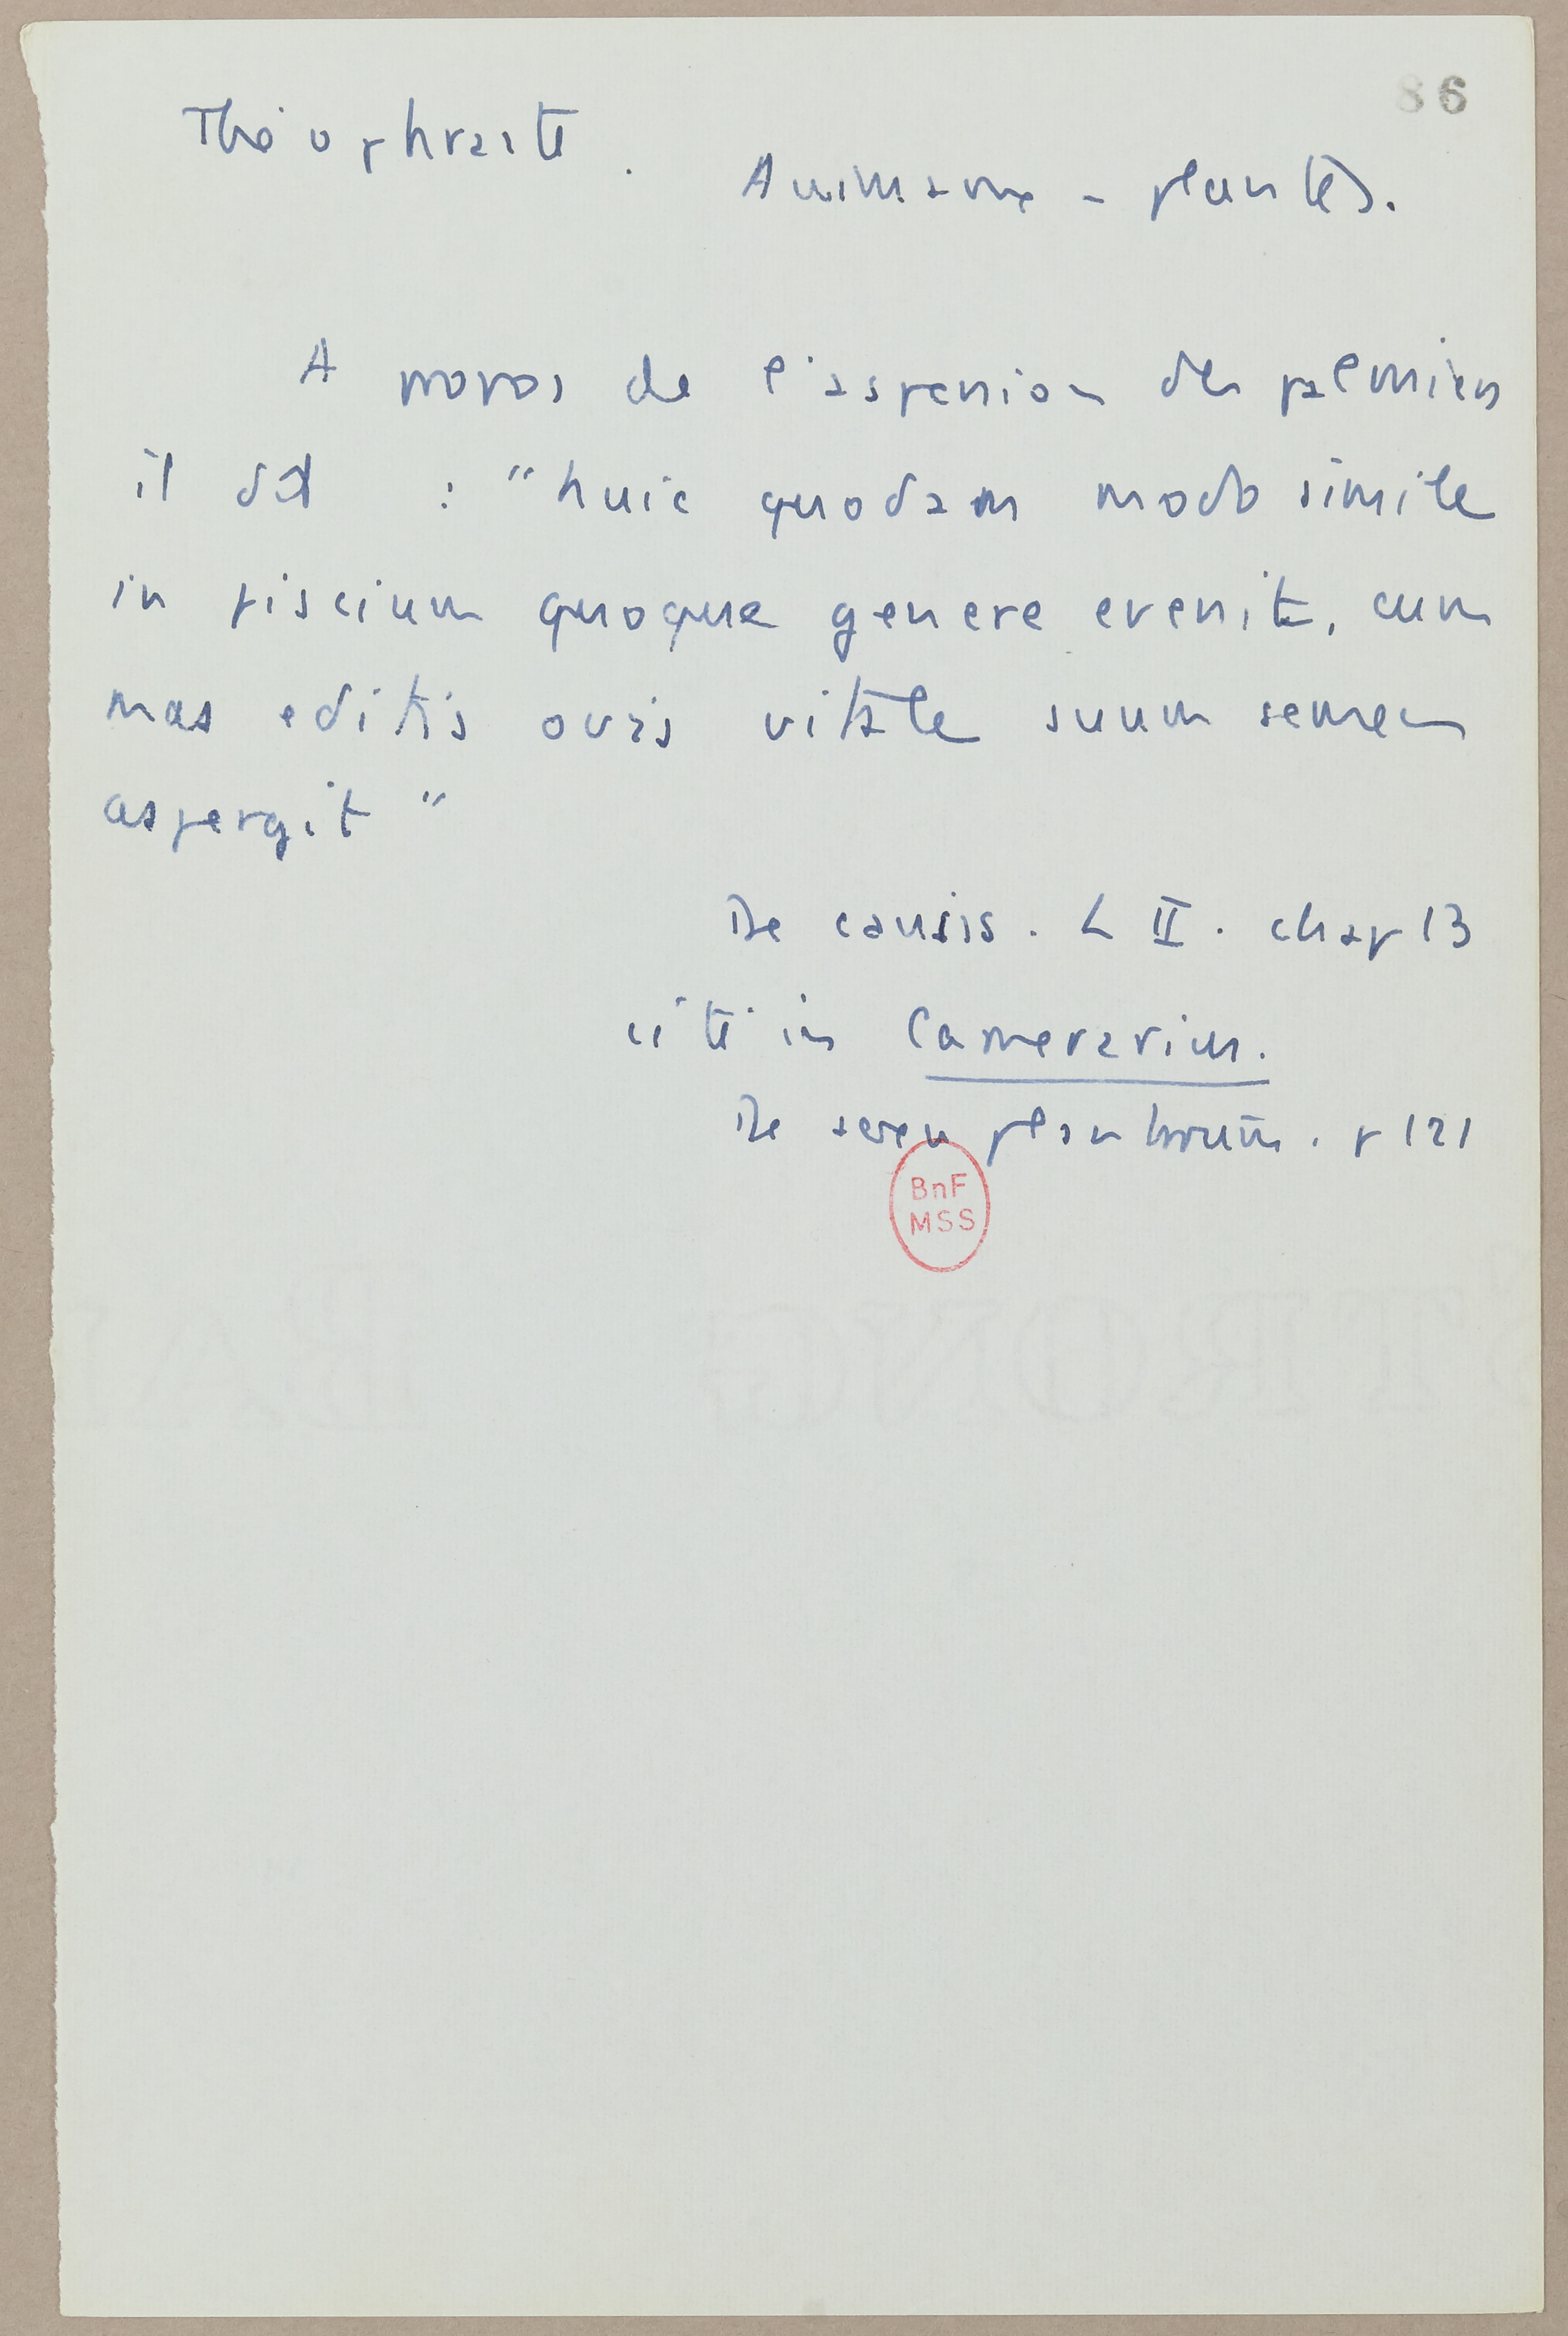 86
Théophraste.
Animaux - plantes.
A propos de l'aspersion des palmiers
il dit : "huic quodam modo simile
in piscium quoque genere evenit, cum
mas editis ovis vitale suum semen
aspergit"
De causis. L II. chap 13
cité in Camerarius.
De sexu plantarum. p 121
BnF
MSS